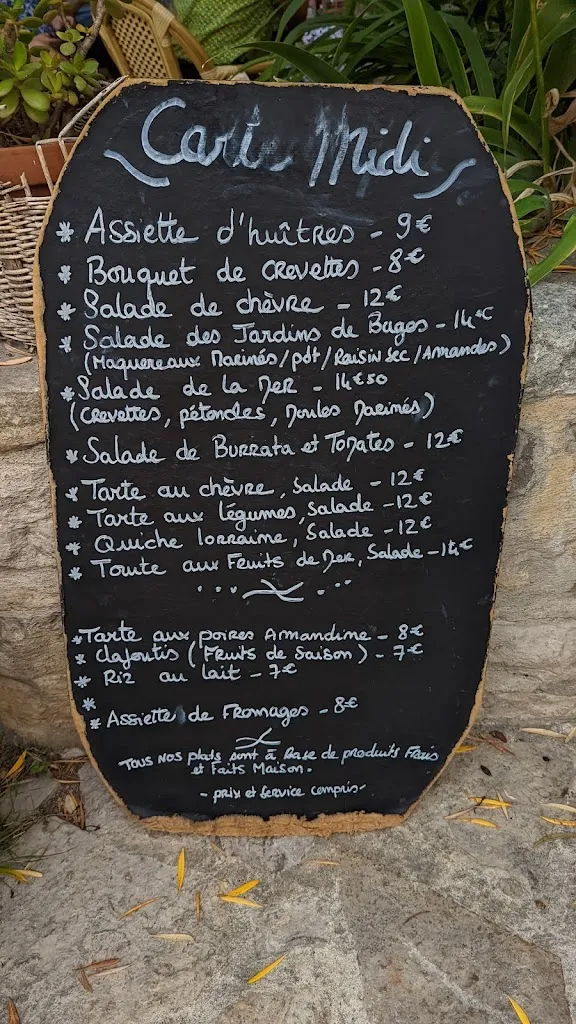 Carte Midi
* Assiette d'huîtres - 9€
* Bouquet de crevettes - 8€
* Salade de chèvre - 12€
* Salade des Jardins de Bages - 14€
(Maquereaux Marinés / pdt / Raisin Sec / Amandes)
* Salade de la Mer - 14€50
(Crevettes, pétoncles, Moules Marinés)
* Salade de Burrata et Tomates - 12€
* Tarte au chèvre, Salade - 12€
* Tarte aux légumes, Salade - 12€
* Quiche lorraine, Salade - 12€
* Tourte aux Fruits de Mer, Salade - 14€
* Tarte aux poires Amandine - 8€
* Clafoutis (Fruits de Saison) - 7€
* Riz au lait - 7€
*
* Assiette de Fromages - 8€
Tous nos plats sont à Base de produits Frais
et Faits Maison.
- prix et Service compris -